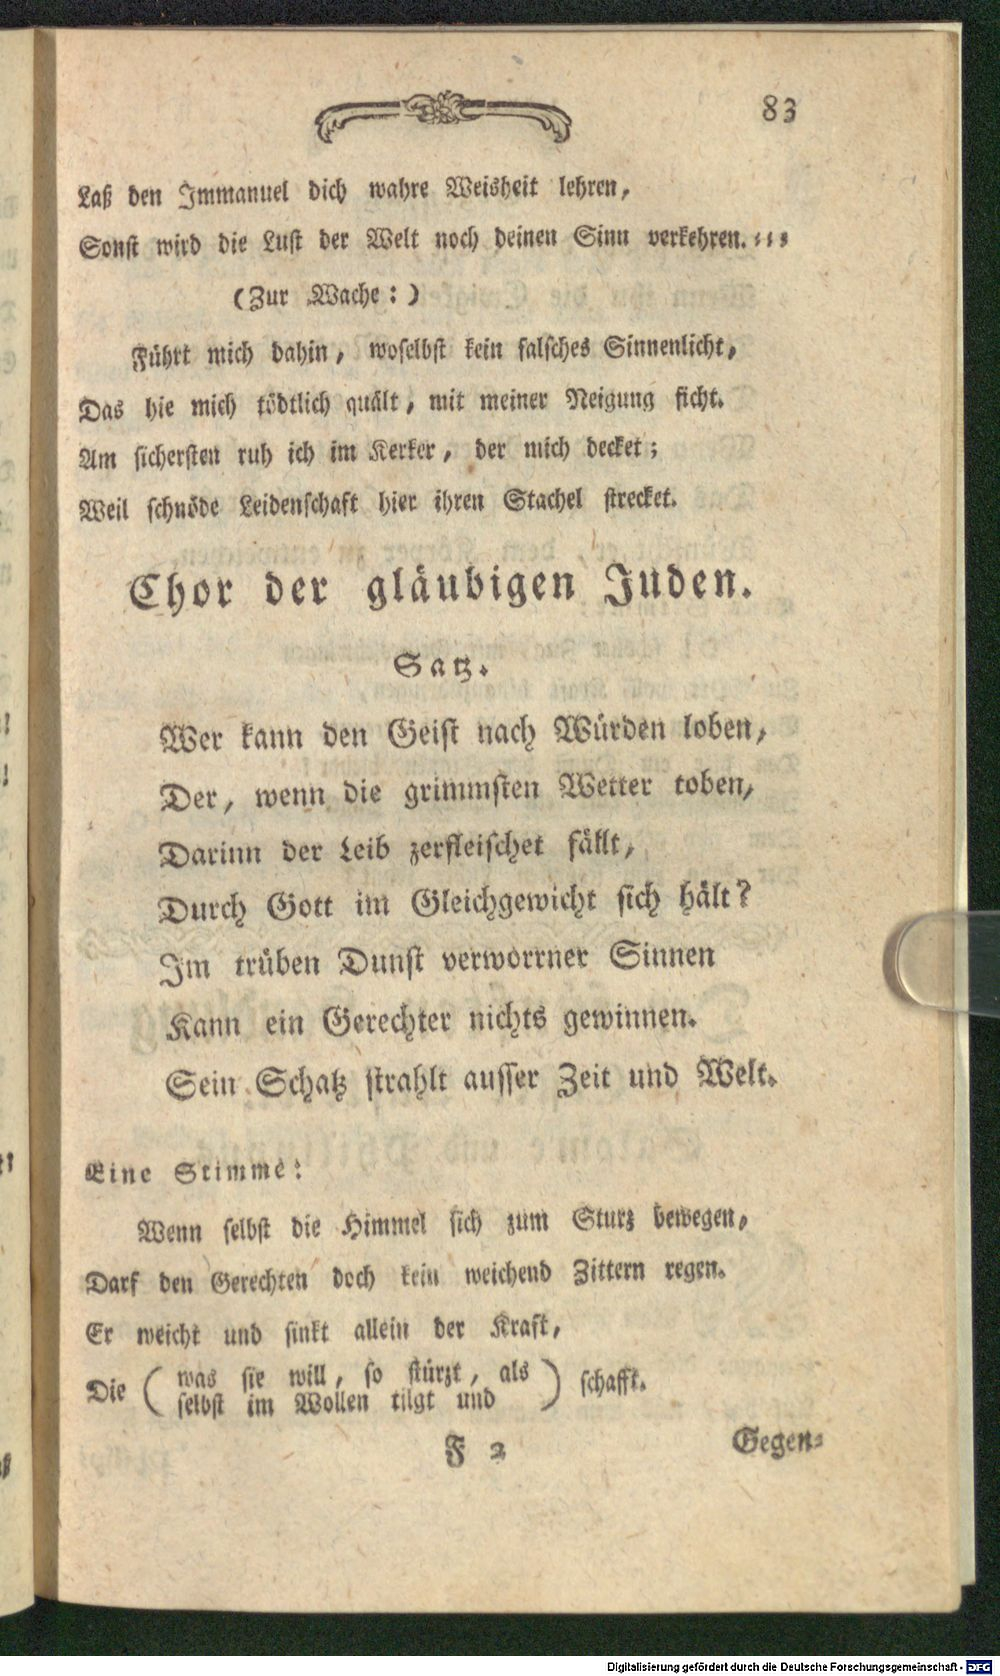 83
Laß den Immanuel dich wahre Weisheit lehren,
Sonst wird die Lust der Welt noch deinen Sinn verkehren. ⸗⸗⸗
(Zur Wache:)
Führt mich dahin, woselbst kein falsches Sinnenlicht,
Das hie mich tödtlich quält, mit meiner Neigung ficht.
Am sichersten ruh ich im Kerker, der mich decket;
Weil schnöde Leidenschaft hier ihren Stachel strecket.
Chor der gläubigen Juden.
Satz.
Wer kann den Geist nach Würden loben,
Der, wenn die grimmsten Wetter toben,
Darinn der Leib zerfleischet fällt,
Durch Gott im Gleichgewicht sich hält?
Im trüben Dunst verworrner Sinnen
Kann ein Gerechter nichts gewinnen.
Sein Schatz strahlt ausser Zeit und Welt.
Eine Stimme:
Wenn selbst die Himmel sich zum Sturz bewegen,
Darf den Gerechten doch kein weichend Zittern regen.
Er weicht und sinkt allein der Kraft,
Die (was sie will, so stürzt, als
selbst im Wollen tilgt und) schafft.
F 2
Gegen⸗
Digitalisierung gefördert durch die Deutsche Forschungsgemeinschaft - DFG